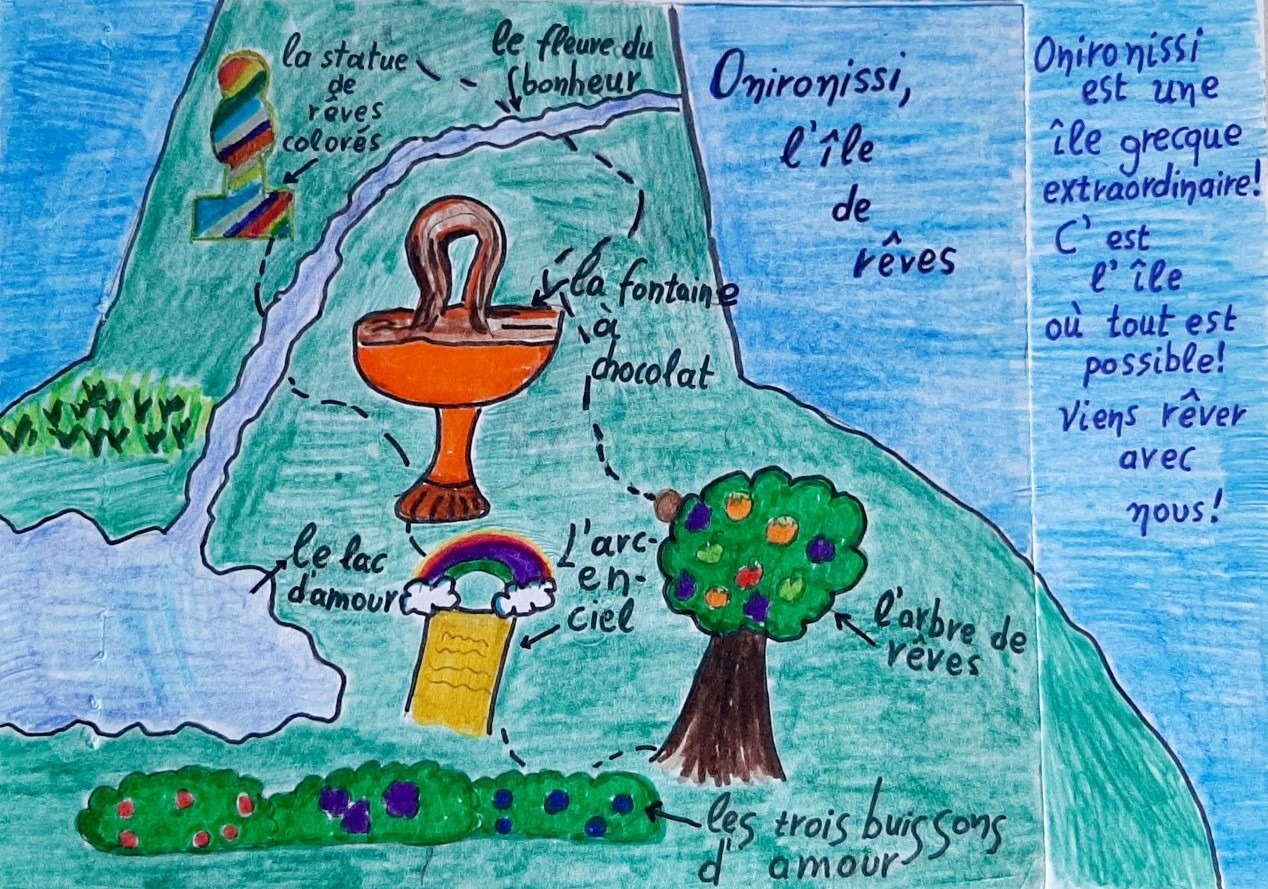 la statue
de
rêves
colorés
le fleuve du
bonheur
Onironissi,
l'île
de
rêves
Onironissi
est une
île grecque
extraordinaire!
C'est
l'île
où tout est
possible!
Viens rêver
avec
nous!
la fontaine
à
chocolat
le lac
d'amour
L'arc-
en-
ciel
l'arbre de
rêves
les trois buissons
d'amour